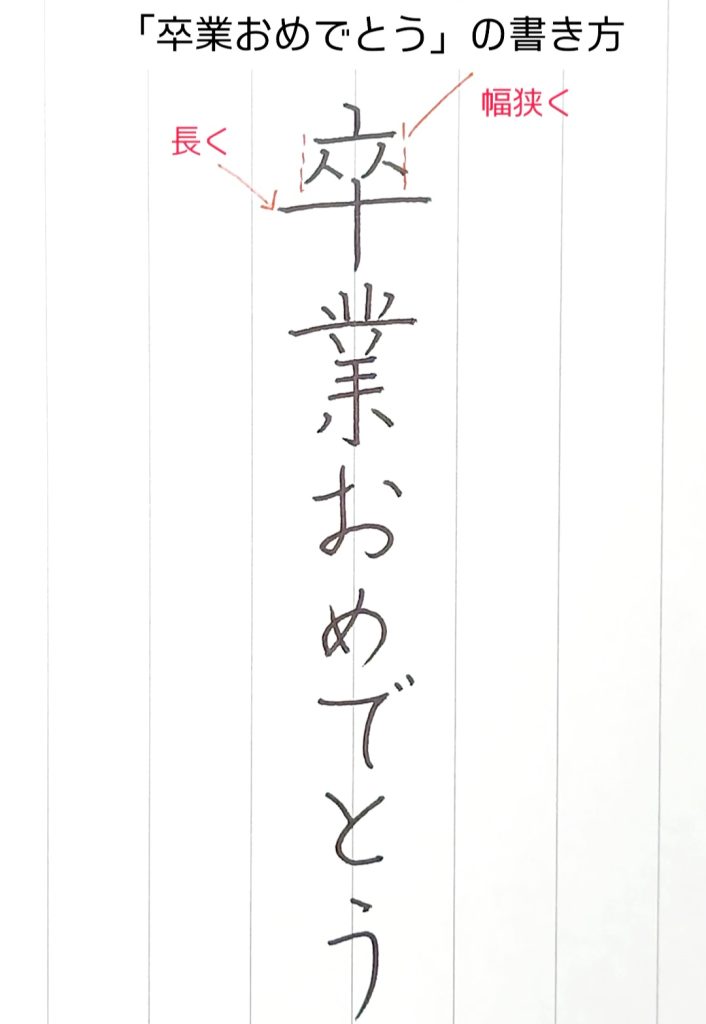 「卒業おめでとう」の書き方
幅狭く
長く
卒業おめでとう